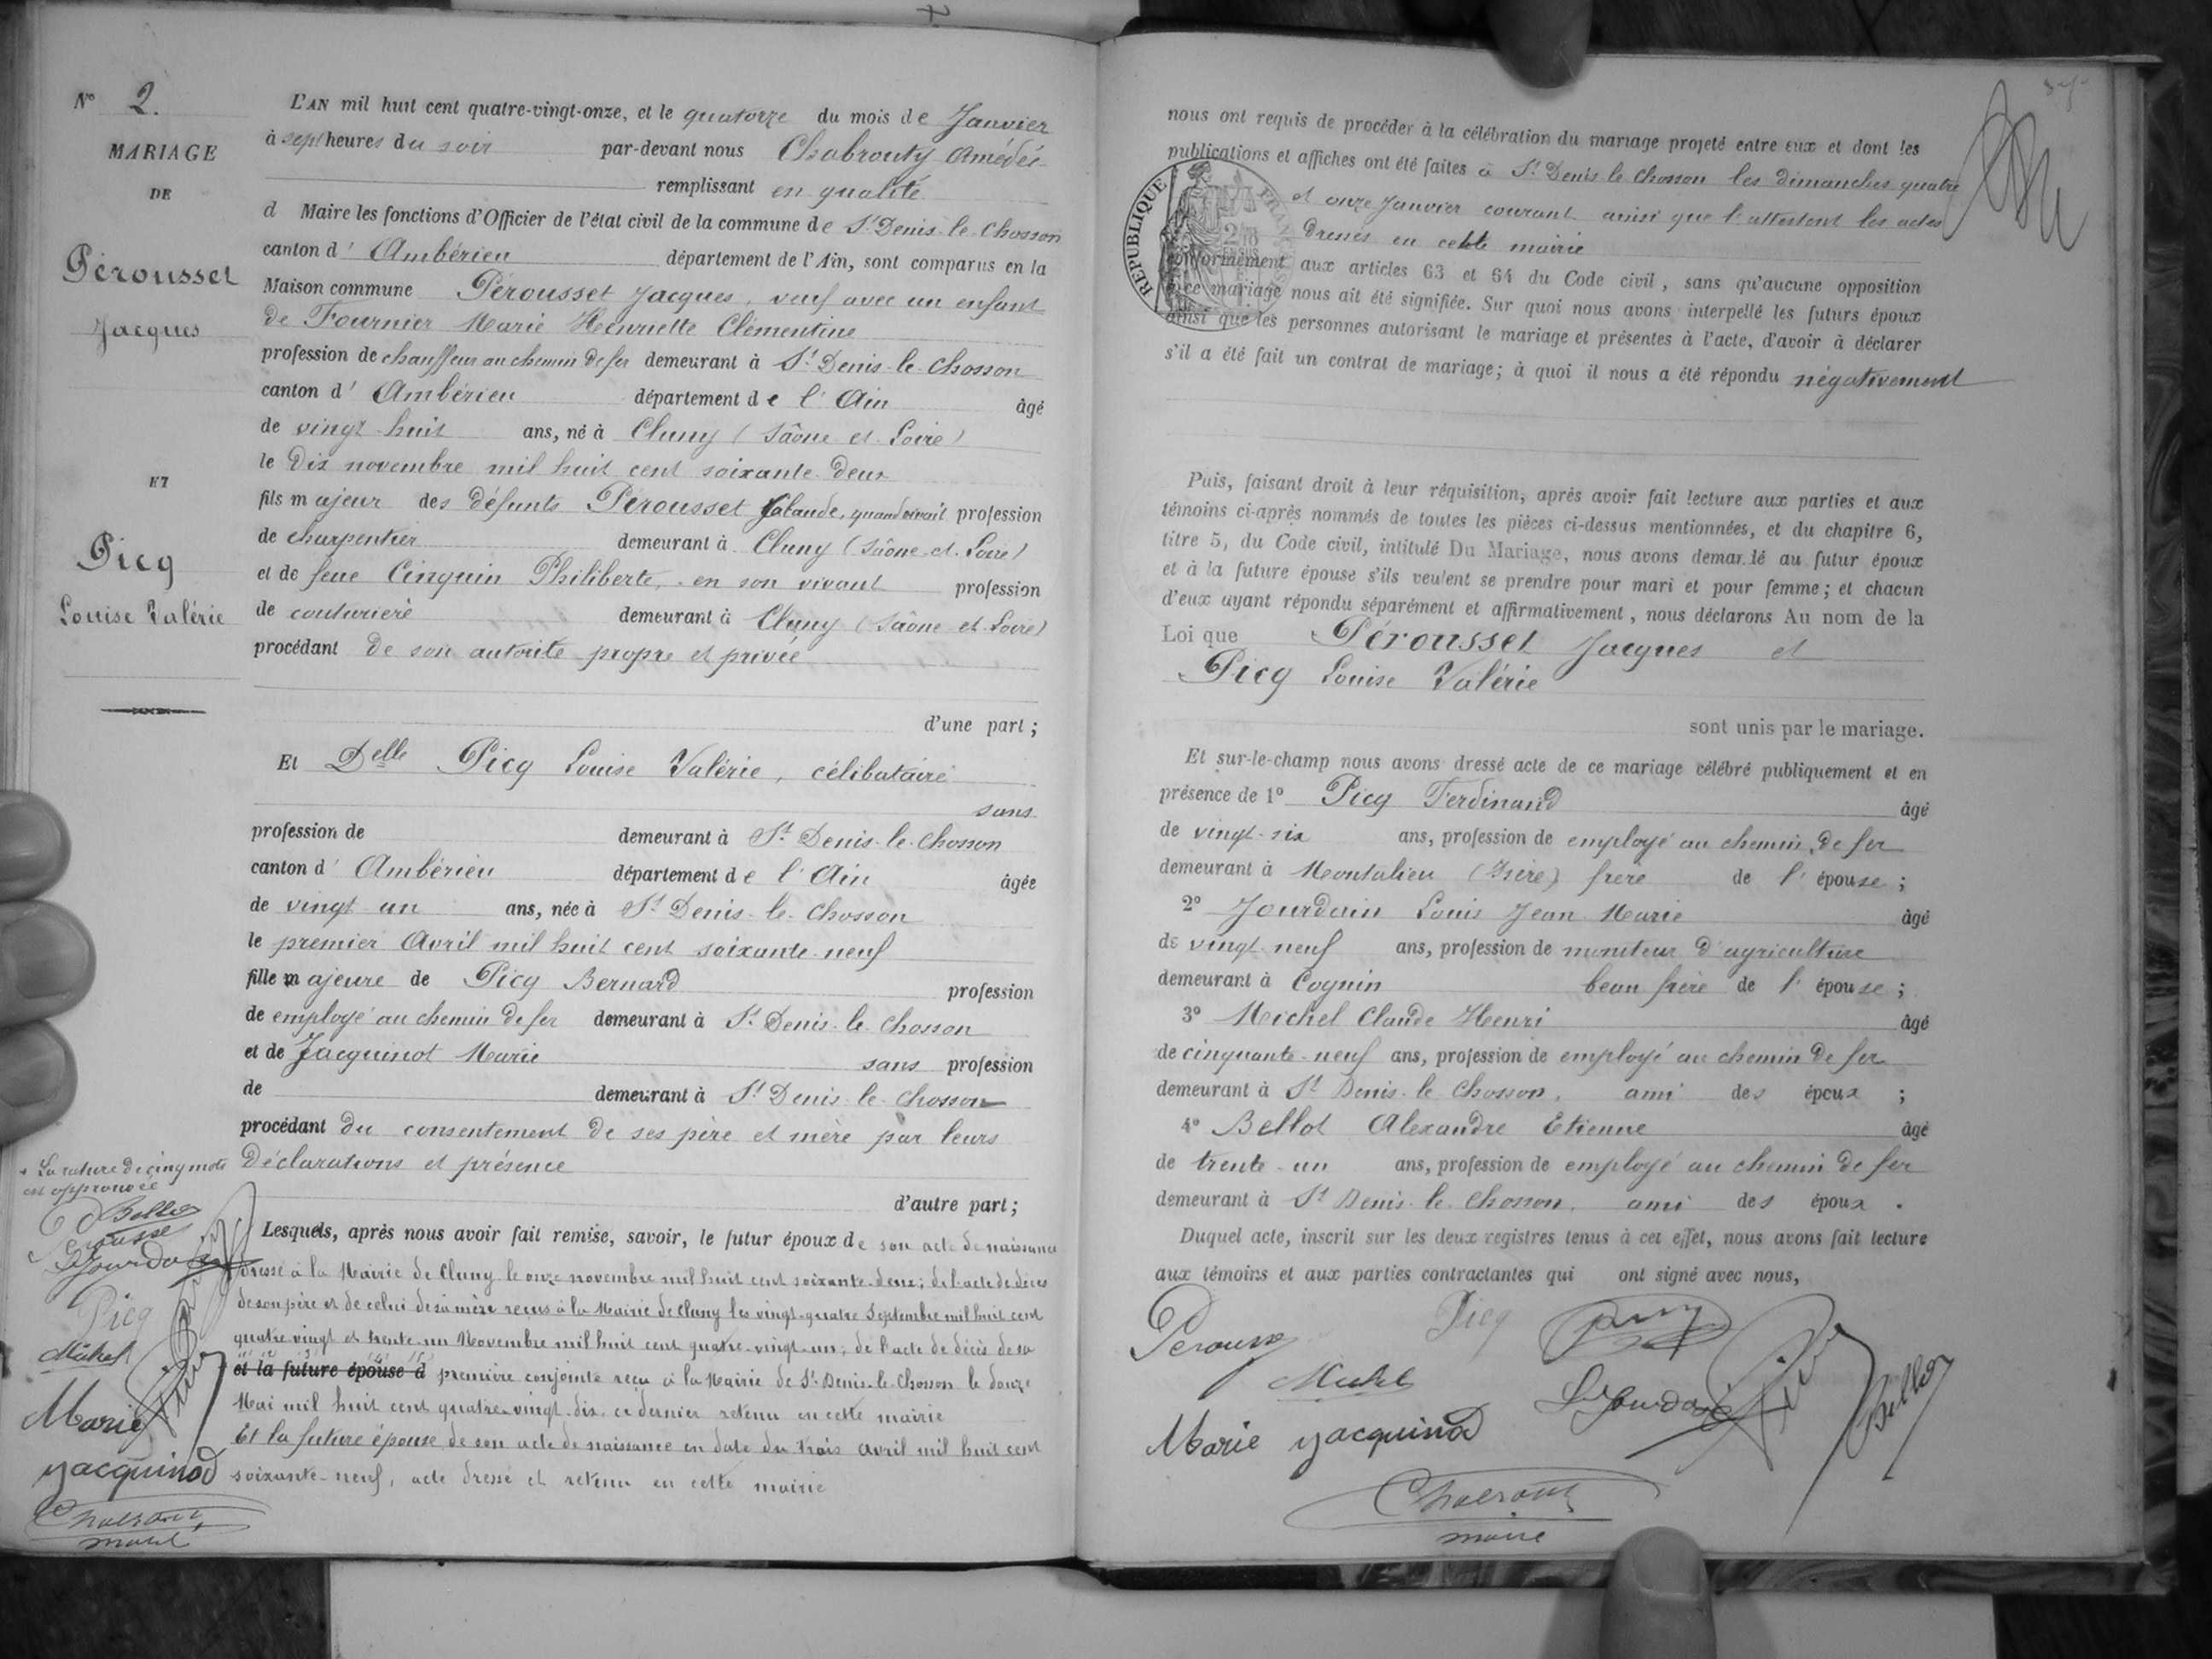 N° 2.
MARIAGE
DE
Pérousset
Jacques
ET
Picq
Louise Valérie
L'AN mil huit cent quatre-vingt-onze, et le quatorze du mois de Janvier
à sept heures du soir par-devant nous Chabrouty Amédée
remplissant en qualité
d Maire les fonctions d'Officier de l'état civil de la commune de St Denis-le-Chosson
canton d' Ambérieu département de l'Ain, sont comparus en la
Maison commune Pérousset Jacques, veuf avec un enfant
de Fournier Marie Henriette Clémentine
profession de chauffeur au chemin de fer demeurant à St Denis-le-Chosson
canton d' Ambérieu département de l'Ain âgé
de vingt-huit ans, né à Cluny (Saône et Loire)
le dix novembre mil huit cent soixante-deux
fils majeur des défunts Pérousset Claude, quand vivait profession
de charpentier demeurant à Cluny (Saône-et-Loire)
et de feue Cinquin Philiberte, en son vivant profession
de couturière demeurant à Cluny (Saône et Loire)
procédant de son autorité propre et privée
d'une part;
Et Delle Picq Louise Valérie, célibataire
sans
profession de demeurant à St Denis-le-Chosson
canton d' Ambérieu département de l'Ain âgée
de vingt-un ans, née à St Denis-le-Chosson
le premier Avril mil huit cent soixante-neuf
fille majeure de Picq Bernard profession
de employé au chemin de fer demeurant à St Denis-le-Chosson
et de Jacquinot Marie sans profession
de demeurant à St Denis-le-Chosson
procédant du consentement de ses père et mère par leurs
déclarations et présence
d'autre part;
Lesquels, après nous avoir fait remise, savoir, le futur époux de son acte de naissance
dressé à la Mairie de Cluny le onze novembre mil huit cent soixante-deux; de l'acte de décès
de son père et de celui de sa mère reçus à la Mairie de Cluny les vingt-quatre Septembre mil huit cent
quatre-vingt et trente-un Novembre mil huit cent quatre-vingt-un; de l'acte de décès de sa
et la future épouse d première conjointe reçu à la Mairie de St Denis-le-Chosson le douze
Mai mil huit cent quatre-vingt-dix, ce dernier retenu en cette mairie
Et la future épouse, de son acte de naissance en date du trois avril mil huit cent
soixante-neuf, acte dressé et retenu en cette mairie
La rature de cinq mots
est approuvée
Bellot
Perousse
Jourdain
Picq
Michel
Marie
Jacquinod
Chabrouty
maire
nous ont requis de procéder à la célébration du mariage projeté entre eux et dont les
publications et affiches ont été faites à St Denis-le-Chosson les dimanches quatre
et onze Janvier courant ainsi que l'attestent les actes
dressés en cette mairie
RÉPUBLIQUE FRANÇAISE
conformément aux articles 63 et 64 du Code civil, sans qu'aucune opposition
à ce mariage nous ait été signifiée. Sur quoi nous avons interpellé les futurs époux
ainsi que les personnes autorisant le mariage et présentes à l'acte, d'avoir à déclarer
s'il a été fait un contrat de mariage; à quoi il nous a été répondu négativement
Puis, faisant droit à leur réquisition, après avoir fait lecture aux parties et aux
témoins ci-après nommés de toutes les pièces ci-dessus mentionnées, et du chapitre 6,
titre 5, du Code civil, intitulé Du Mariage, nous avons demandé au futur époux
et à la future épouse s'ils veulent se prendre pour mari et pour femme; et chacun
d'eux ayant répondu séparément et affirmativement, nous déclarons Au nom de la
Loi que Pérousset Jacques et
Picq Louise Valérie
sont unis par le mariage.
Et sur-le-champ nous avons dressé acte de ce mariage célébré publiquement et en
présence de 1° Picq Ferdinand âgé
de vingt-six ans, profession de employé au chemin de fer
demeurant à Montalieu (Isère) frère de l'épouse;
2° Jourdain Louis Jean Marie âgé
de vingt-neuf ans, profession de moniteur d'agriculture
demeurant à Cognin beau frère de l'épouse;
3° Michel Claude Henri âgé
de cinquante-neuf ans, profession de employé au chemin de fer
demeurant à St Denis-le-Chosson, ami des époux;
4° Bellot Alexandre Etienne âgé
de trente-un ans, profession de employé au chemin de fer
demeurant à St Denis-le-Chosson, ami des époux.
Duquel acte, inscrit sur les deux registres tenus à cet effet, nous avons fait lecture
aux témoins et aux parties contractantes qui ont signé avec nous,
Perousse Picq
Michel Jourdain Bellot
Marie Jacquinod
Chabrouty
maire